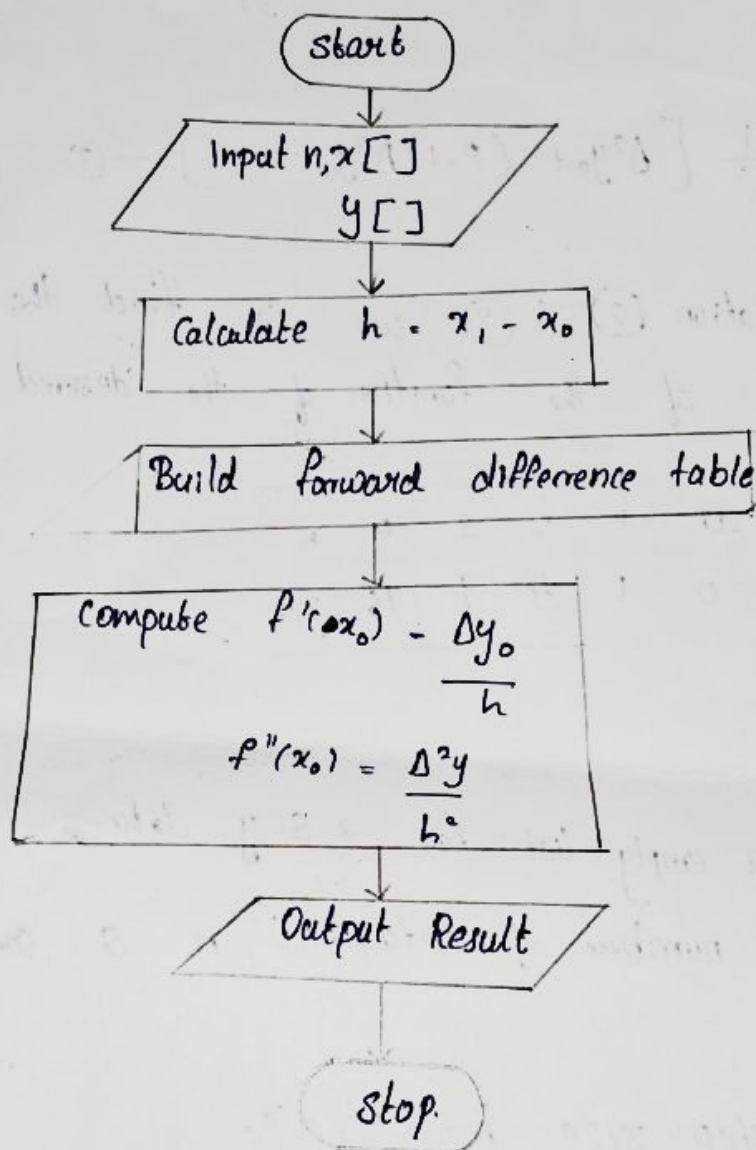 Start
Input n, x[ ]
y[ ]
Calculate h = x₁ - x₀
Build forward difference table
Compute f'(x₀) - Δy₀
h
f''(x₀) = Δ²y
h²
Output Result
Stop.